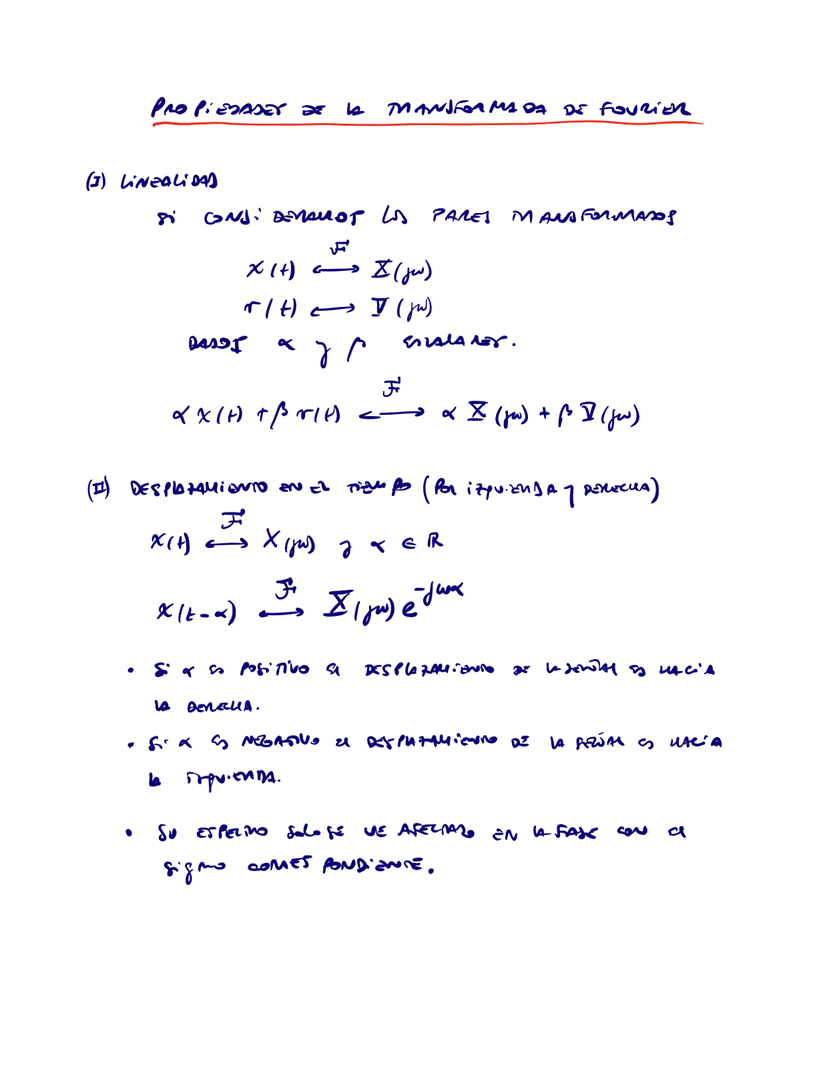 PROPIEDADES DE LA TRANSFORMADA DE FOURIER
(I) LINEALIDAD
SI CONSIDERAMOS LOS PARES TRANSFORMADOS
x(t) ⟷ X(jω)
ℱ
v(t) ⟷ V(jω)
DADOS α y β ESCALARES.
ℱ
α x(t) + β v(t) ⟷ α X(jω) + β V(jω)
(II) DESPLAZAMIENTO EN EL TIEMPO (POR IZQUIERDA y DERECHA)
ℱ
x(t) ⟷ X(jω) y α ∈ ℝ
ℱ
x(t-α) ⟷ X(jω) e^{-jωα}
• Si α ES POSITIVO EL DESPLAZAMIENTO DE LA SEÑAL ES HACIA
LA DERECHA.
• Si α ES NEGATIVO EL DESPLAZAMIENTO DE LA SEÑAL ES HACIA
LA IZQUIERDA.
• SU ESPECTRO SOLO SE VE AFECTADO EN LA FASE CON EL
SIGNO CORRESPONDIENTE.